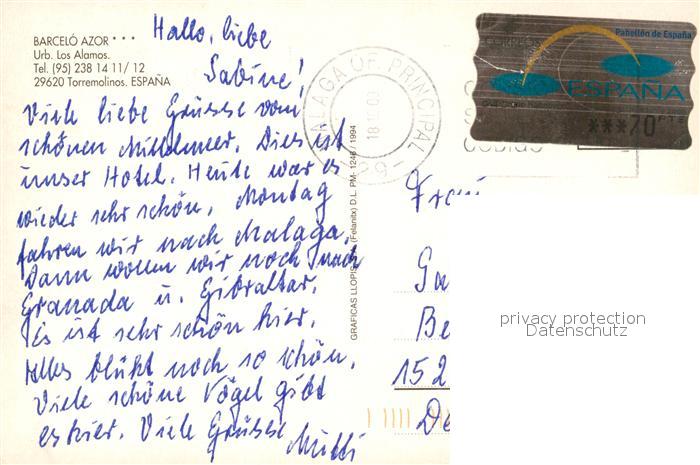 BARCELÓ AZOR ***
Urb. Los Alamos.
Tel. (95) 238 14 11/ 12
29620 Torremolinos. ESPAÑA
Hallo, liebe
Sabine!
Viele liebe Grüsse vom
schönen Mittelmeer. Dies ist
unser Hotel. Heute war es
wieder sehr schön, Montag
fahren wir nach Malaga.
Dann wollen wir noch nach
Granada u. Gibraltar.
Es ist sehr schön hier.
Alles blüht noch so schön.
Viele schöne Vögel gibt
es hier. Viele Grüsse
Mutti
GRAFICAS LLOPIS (Felanitx) D.L. PM- 1246 / 1994
MALAGA OF. PRINCIPAL
Pabellón de España
CORREOS
ESPAÑA
***70 PTS
Frau
Sa
Be
152
De
privacy protection
Datenschutz